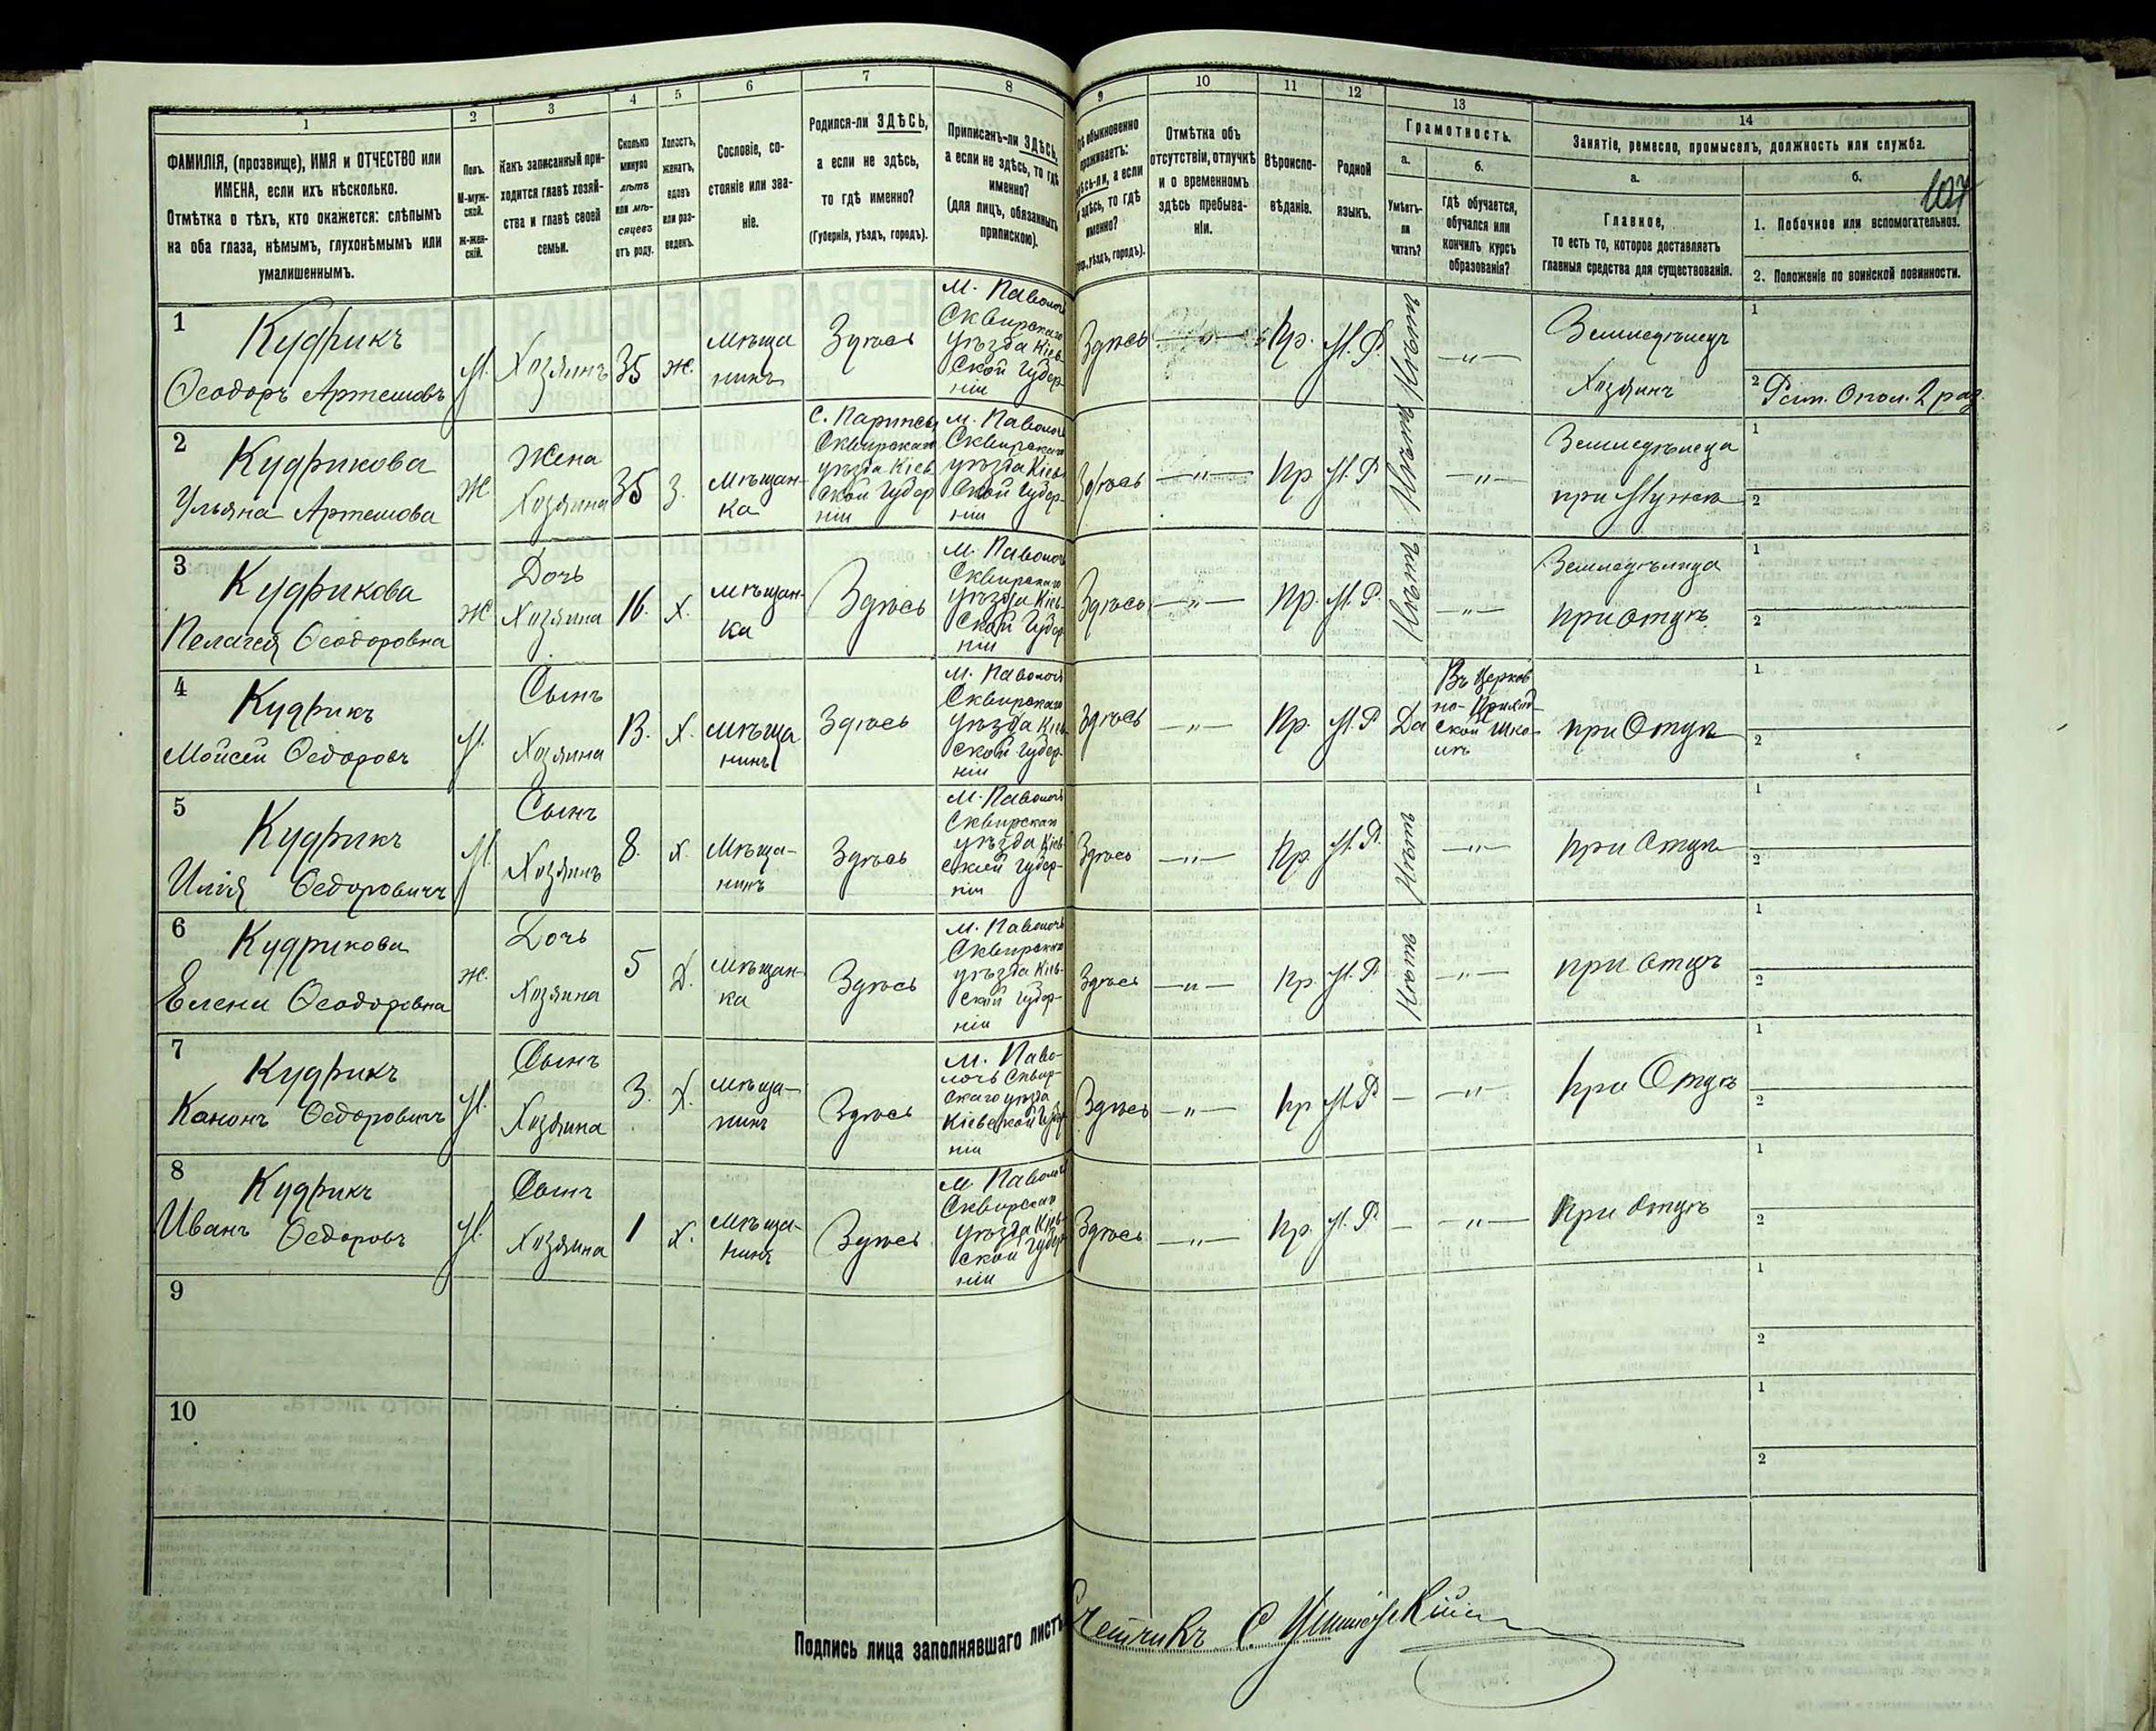 1
2
3
4
5
6
7
8
9
10
11
12
13
14
ФАМИЛІЯ, (прозвище), ИМЯ и ОТЧЕСТВО или
ИМЕНА, если ихъ нѣсколько.
Отмѣтка о тѣхъ, кто окажется: слѣпымъ
на оба глаза, нѣмымъ, глухонѣмымъ или
умалишеннымъ.
Полъ.
М-муж-
ской.
Ж-жен-
скій.
Какъ записанный при-
ходится главѣ хозяй-
ства и главѣ своей
семьи.
Сколько
минуло
лѣтъ
или мѣ-
сяцевъ
отъ роду.
Холостъ,
женатъ,
вдовъ
или раз-
веденъ.
Сословіе, со-
стояніе или зва-
ніе.
Родился-ли ЗДѢСЬ,
а если не здѣсь,
то гдѣ именно?
(Губернія, уѣздъ, городъ).
Приписанъ-ли ЗДѢСЬ,
а если не здѣсь, то гдѣ
именно?
(для лицъ, обязанныхъ
припискою).
обыкновенно
проживаетъ:
здѣсь-ли, а если
здѣсь, то гдѣ
именно?
уѣздъ, городъ).
Отмѣтка объ
отсутствіи, отлучкѣ
и о временномъ
здѣсь пребыва-
ніи.
Вѣроиспо-
вѣданіе.
Родной
языкъ.
Грамотность.
а.
Умѣетъ-
ли
читать?
б.
гдѣ обучается,
обучался или
кончилъ курсъ
образованія?
Занятіе, ремесло, промыселъ, должность или служба.
а.
Главное,
то есть то, которое доставляетъ
главныя средства для существованія.
б.
1. Побочное или вспомогательное.
2. Положеніе по воинской повинности.
1
Кудрикъ
Ѳеодоръ Артемовъ
М.
Хозяинъ
35
ж.
Мѣща
нинъ
Здѣсь
М. Паволочь
Сквирскаго
уѣзда Кіев-
ской Губер-
ніи
Здѣсь
—„—
Пр.
М. Р.
Нѣтъ
—„—
Земледѣлецъ
Хозяинъ
1
2 Рат. Опол. 2 раз.
2
Кудрикова
Ульяна Артемова
Ж
Жена
Хозяина
35
З.
Мѣщан-
ка
Сквирскаго
уѣзда Кіев
ской Губер
ніи
М. Паволочь
Сквирскаго
уѣзда Кіев-
ской Губер-
ніи
Здѣсь
—„—
Пр
М. Р
Нѣтъ
—„—
Земледѣлица
при Мужѣ
1
2
3
Кудрикова
Пелагея Ѳеодоровна
Ж
Дочь
Хозяина
16.
Х.
мѣщан-
ка
Здѣсь
М. Паволочь
Сквирскаго
уѣзда Кіев-
ской Губер
ніи
Здѣсь
—„—
Пр.
М. Р.
Нѣтъ
—„—
Земледѣлица
при отцѣ
1
2
4
Кудрикъ
Мойсей Ѳедоровъ
М.
Сынъ
Хозяина
13.
Х.
мѣща
нинъ
Здѣсь
М. Паволочь
Сквирскаго
уѣзда Кіев
ской губер-
ніи
Здѣсь
—„—
Пр.
М. Р
Да
Въ Церков
но-Приход-
ской Шко-
лѣ
при Отцѣ
1
2
5
Кудрикъ
Илія Ѳедоровичъ
М.
Сынъ
Хозяинъ
8.
х.
Мѣща-
нинъ
Здѣсь
М. Паволочь
Сквирскаго
уѣзда Кіев-
ской губер-
ніи
Здѣсь
—„—
Пр.
М. Р.
Нѣтъ
—„—
при Отцѣ
1
2
6
Кудрикова
Елена Ѳеодоровна
Ж.
Дочь
Хозяина
5
Х.
мѣщан-
ка
Здѣсь
М. Паволочь
Сквирскаго
уѣзда Кіев-
ской губер-
ніи
Здѣсь
—„—
Пр.
М. Р.
Нѣтъ
—„—
при отцѣ
1
2
7
Кудрикъ
Канонъ Ѳедоровичъ
М.
Сынъ
Хозяина
3.
Х.
мѣща-
нинъ
Здѣсь
М. Паво-
лочь Сквир-
скаго уѣзда
Кіевской Губер
ніи
Здѣсь
—„—
Пр
М. Р.
—
—„—
при Отцѣ
1
2
8
Кудрикъ
Иванъ Ѳедоровъ
М.
Сынъ
Хозяина
1
Х.
Мѣща-
нинъ
Здѣсь
М. Паволочь
Сквирскаго
уѣзда Кіев-
ской Губер
ніи
Здѣсь
—„—
Пр.
М. Р.
—
—„—
при отцѣ
1
2
9
1
2
10
1
2
Подпись лица заполнявшаго листъ
Счетчикъ С.